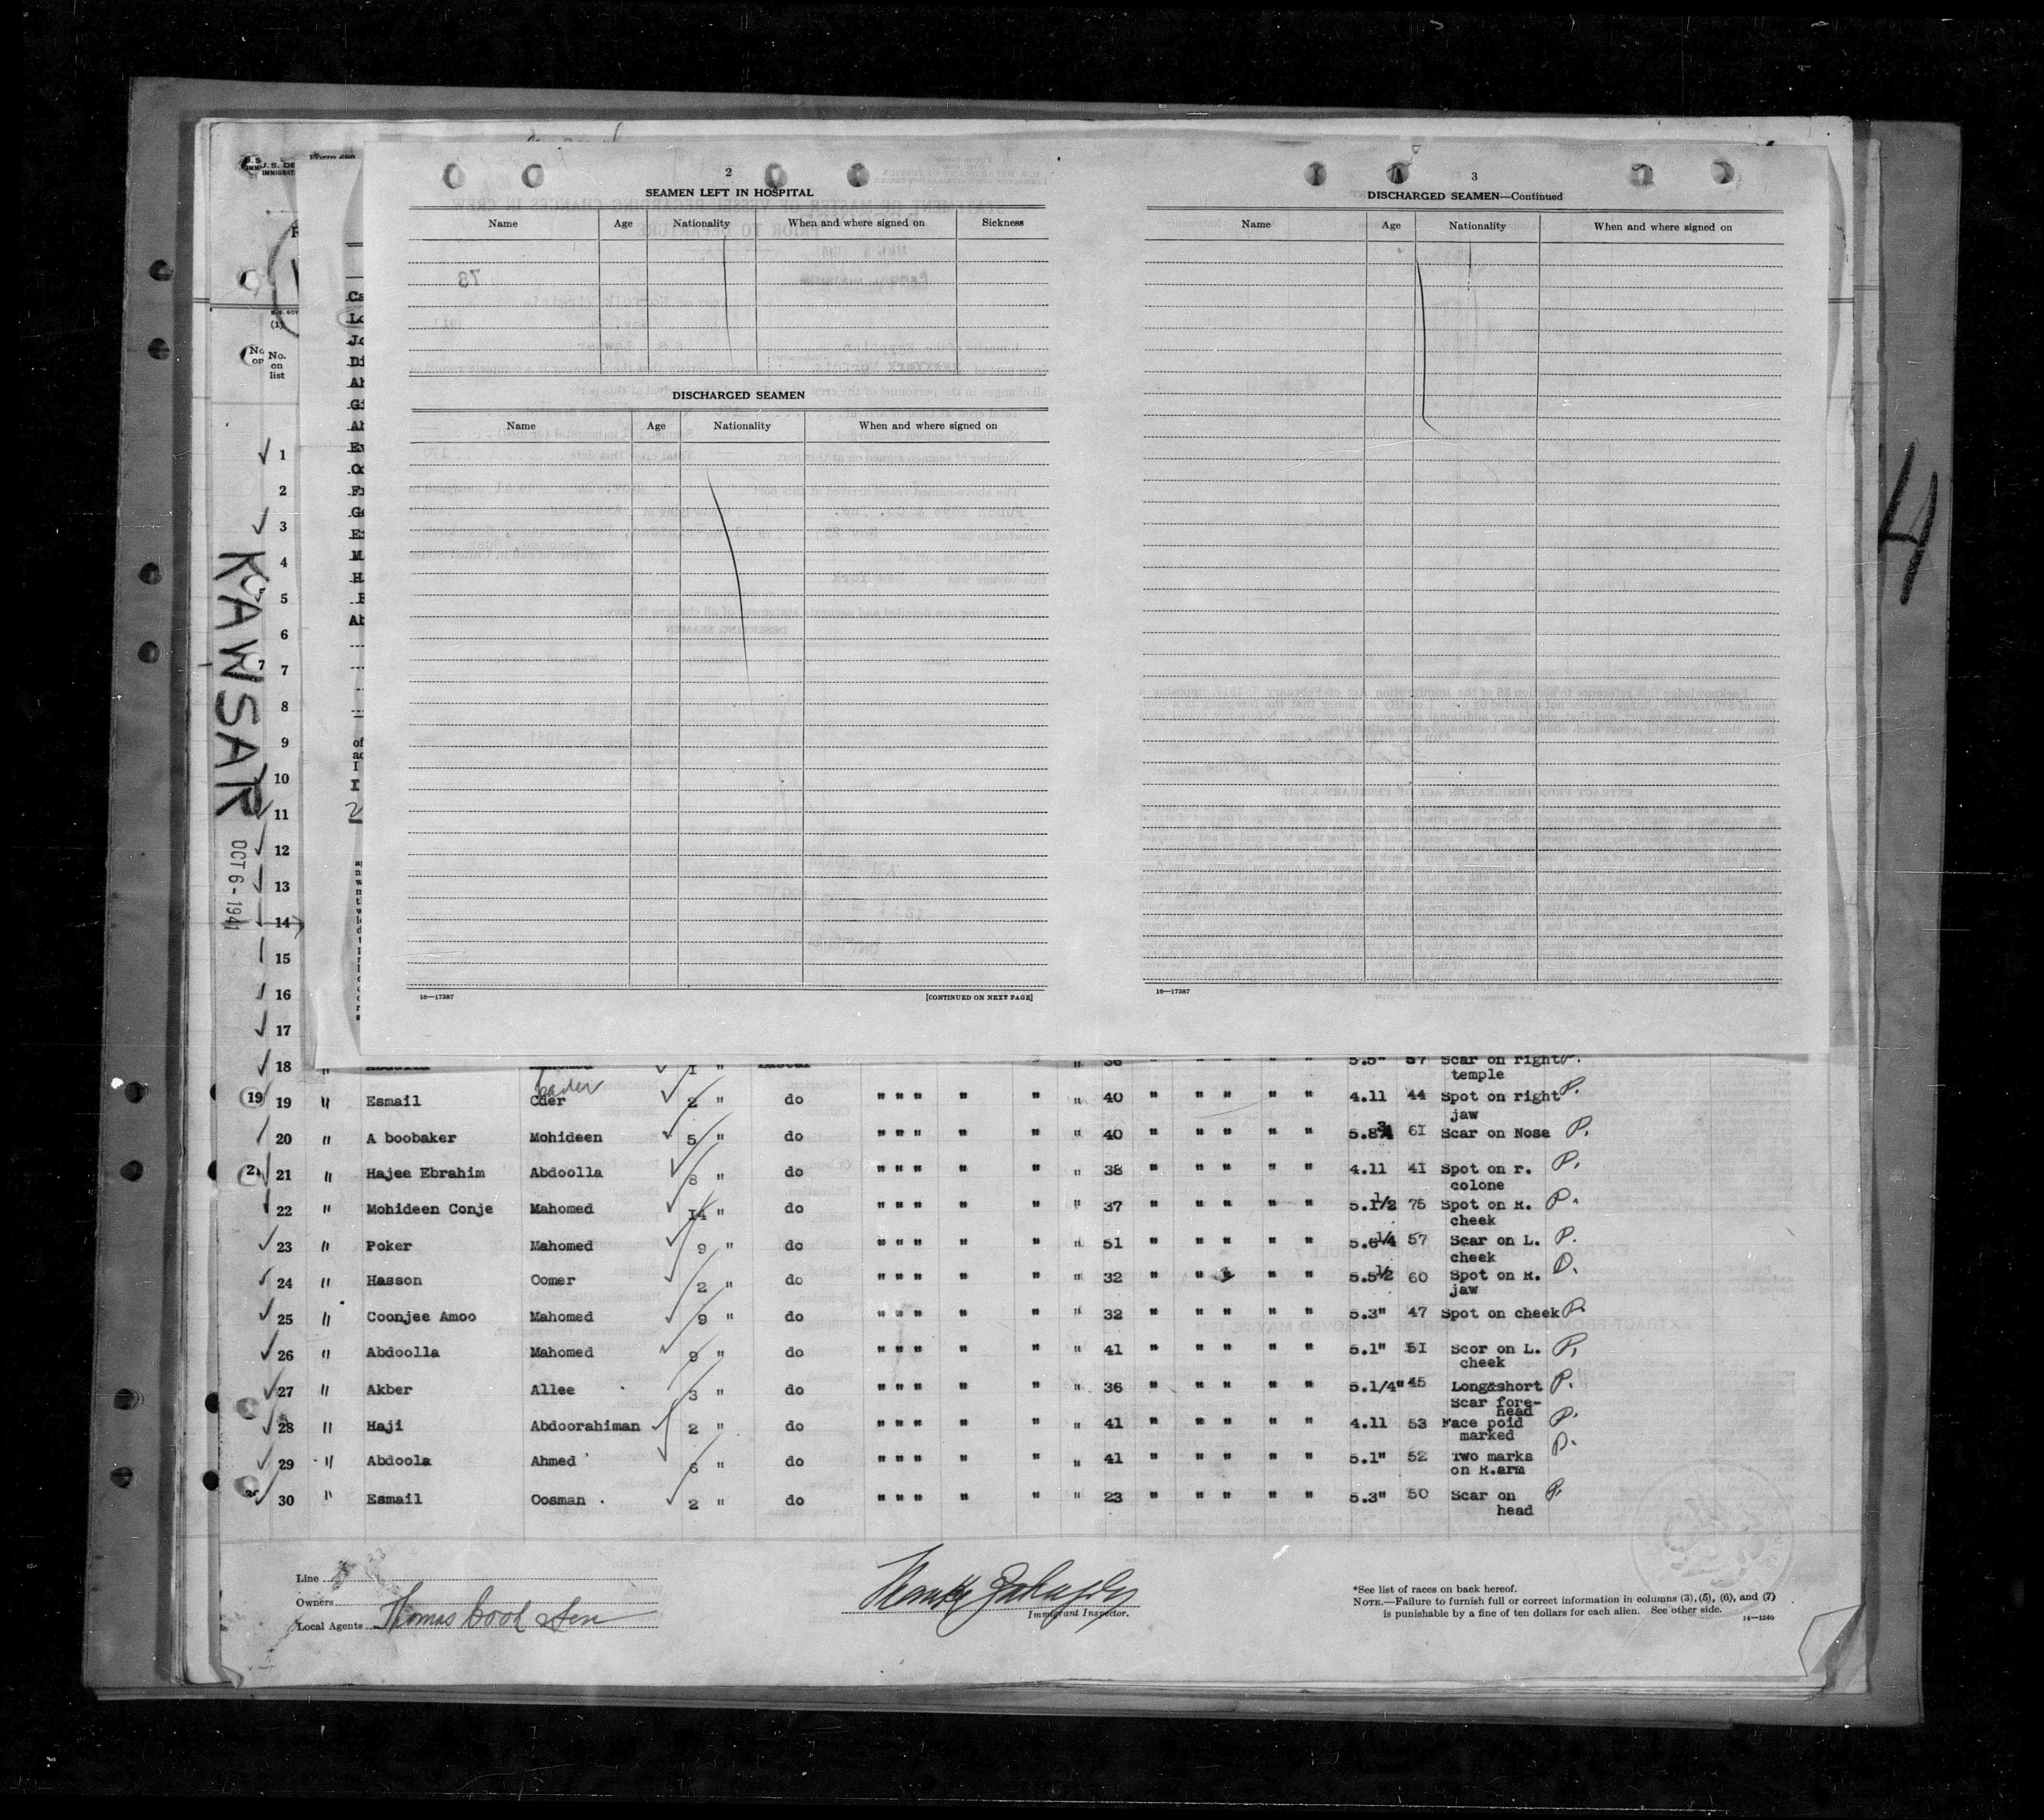 2
SEAMEN LEFT IN HOSPITAL
Name Age Nationality When and where signed on Sickness
DISCHARGED SEAMEN
Name Age Nationality When and where signed on
16—17387 [CONTINUED ON NEXT PAGE]
3
DISCHARGED SEAMEN—Continued
Name Age Nationality When and where signed on
16—17387
4
KAWSAR
OCT 6 - 1941
(1)
No. on list
1
2
3
4
5
6
7
8
9
10
11
12
13
14
15
16
17
18 " 1 " " 36 " " " " " 5.5" 57 Scar on right P.
temple
Kader
19 19 " Esmail Cder 2 " do " " " " " " 40 " " " " " 4.11 44 Spot on right P.
jaw
20 " A boobaker Mohideen 5 " do " " " " " " 40 " " " " " 5.8¾ 61 Scar on Nose P.
21 21 " Hajee Ebrahim Abdoolla 8 " do " " " " " " 38 " " " " " 4.11 41 Spot on r. P.
colone
22 " Mohideen Conje Mahomed 14 " do " " " " " " 37 " " " " " 5.1½ 75 Spot on R. P.
cheek
23 " Poker Mahomed 9 " do " " " " " " 51 " " " " " 5.6¼ 57 Scar on L. P.
cheek
24 " Hasson Oomer 2 " do " " " " " " 32 " " " " " 5.5½ 60 Spot on R. P.
jaw
25 " Coonjee Amoo Mahomed 9 " do " " " " " " 32 " " " " " 5.3" 47 Spot on cheek P.
26 " Abdoolla Mahomed 9 " do " " " " " " 41 " " " " " 5.1" 51 Scor on L. P.
cheek
27 " Akber Allee 3 " do " " " " " " 36 " " " " " 5.1/4" 45 Long&short P.
Scar fore-
head
28 " Haji Abdoorahiman 2 " do " " " " " " 41 " " " " " 4.11 53 Face poid P.
marked
29 " Abdoola Ahmed 6 " do " " " " " " 41 " " " " " 5.1" 52 Two marks P.
on R.arm
30 " Esmail Oosman 2 " do " " " " " " 23 " " " " " 5.3" 50 Scar on P.
head
Line
Owners
Local Agents Thomas Cook & Son
Immigrant Inspector.
*See list of races on back hereof.
NOTE.—Failure to furnish full or correct information in columns (3), (5), (6), and (7)
is punishable by a fine of ten dollars for each alien. See other side.
14—1240